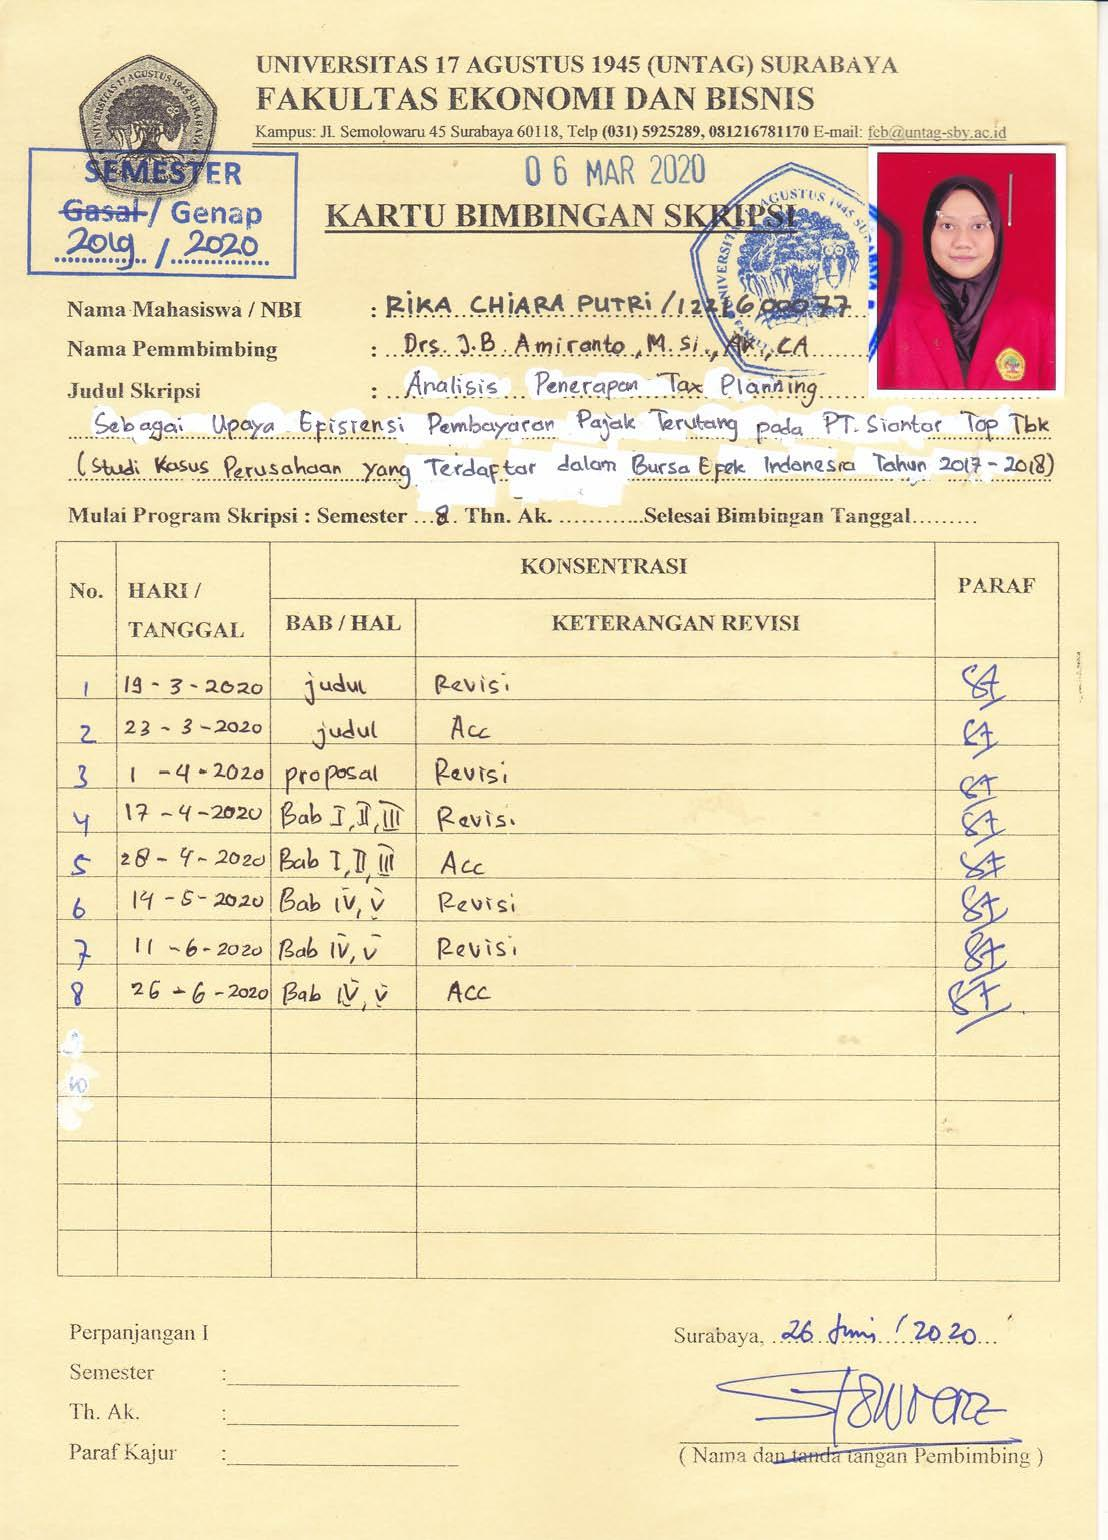 UNIVERSITAS 17 AGUSTUS 1945 (UNTAG) SURABAYA
FAKULTAS EKONOMI DAN BISNIS
Kampus: Jl. Semolowaru 45 Surabaya 60118, Telp (031) 5925289, 081216781170 E-mail: feb@untag-sby.ac.id
UNIVERSITAS 17 AGUSTUS 1945 SURABAYA
SEMESTER
Gasal / Genap
2019 / 2020
06 MAR 2020
KARTU BIMBINGAN SKRIPSI
Nama Mahasiswa / NBI : RIKA CHIARA PUTRI / 1221600077
Nama Pemmbimbing : Drs. J.B Amiranto, M. Si., Ak., CA
Judul Skripsi : Analisis Penerapan Tax Planning
Sebagai Upaya Efisiensi Pembayaran Pajak Terutang pada PT. Siantar Top Tbk
(Studi Kasus Perusahaan yang Terdaftar dalam Bursa Efek Indonesia Tahun 2017 - 2018)
Mulai Program Skripsi : Semester ...8. Thn. Ak. ............Selesai Bimbingan Tanggal.........
No. HARI / TANGGAL KONSENTRASI PARAF
BAB / HAL KETERANGAN REVISI
1 19 - 3 - 2020 judul Revisi
2 23 - 3 - 2020 judul Acc
3 1 - 4 - 2020 proposal Revisi
4 17 - 4 - 2020 Bab I, II, III Revisi
5 28 - 4 - 2020 Bab I, II, III Acc
6 14 - 5 - 2020 Bab IV, V Revisi
7 11 - 6 - 2020 Bab IV, V Revisi
8 26 - 6 - 2020 Bab IV, V Acc
10
Perpanjangan I
Semester :
Th. Ak. :
Paraf Kajur :
Surabaya, 26 Juni / 2020
( Nama dan tanda tangan Pembimbing )